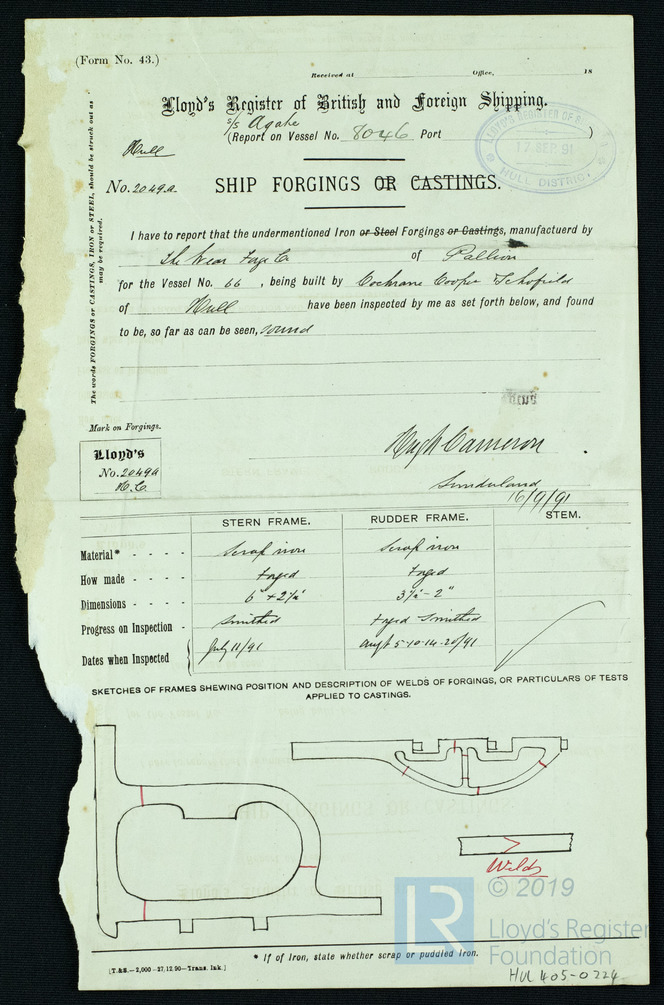 (Form No. 43.)
Received at Office, 18
Lloyd's Register of British and Foreign Shipping.
s/s Agate
(Report on Vessel No. 8046 Port )
LLOYD'S REGISTER OF
17 SEP. 91
HULL DISTRICT.
Hull
No. 2049a. SHIP FORGINGS OR CASTINGS.
The words FORGINGS or CASTINGS, IRON or STEEL, should be struck out as
may be required.
I have to report that the undermentioned Iron or Steel Forgings or Castings, manufactuerd by
The Wear Forge Co of Pallion
for the Vessel No. 66 , being built by Cochrane Cooper Schofield
of Hull have been inspected by me as set forth below, and found
to be, so far as can be seen, sound
Mark on Forgings.
Lloyd's
No. 2049a
H.C.
Hugh Cameron
Sunderland
16/9/91
STERN FRAME. RUDDER FRAME. STEM.
Material* - - - - Scrap iron Scrap iron
How made - - - - Forged Forged
Dimensions - - - - 6" + 2½" 3½ - 2"
Progress on Inspection - Smithed Forged Smithed
Dates when Inspected July 11/91 Augt 5-10-14-20/91
SKETCHES OF FRAMES SHEWING POSITION AND DESCRIPTION OF WELDS OF FORGINGS, OR PARTICULARS OF TESTS
APPLIED TO CASTINGS.
Welds
LR
© 2019
Lloyd's Register
Foundation
* If of Iron, state whether scrap or puddled Iron.
[T.&S.—2,000-27.12.90—Trans. Ink.]
HUL405-0224